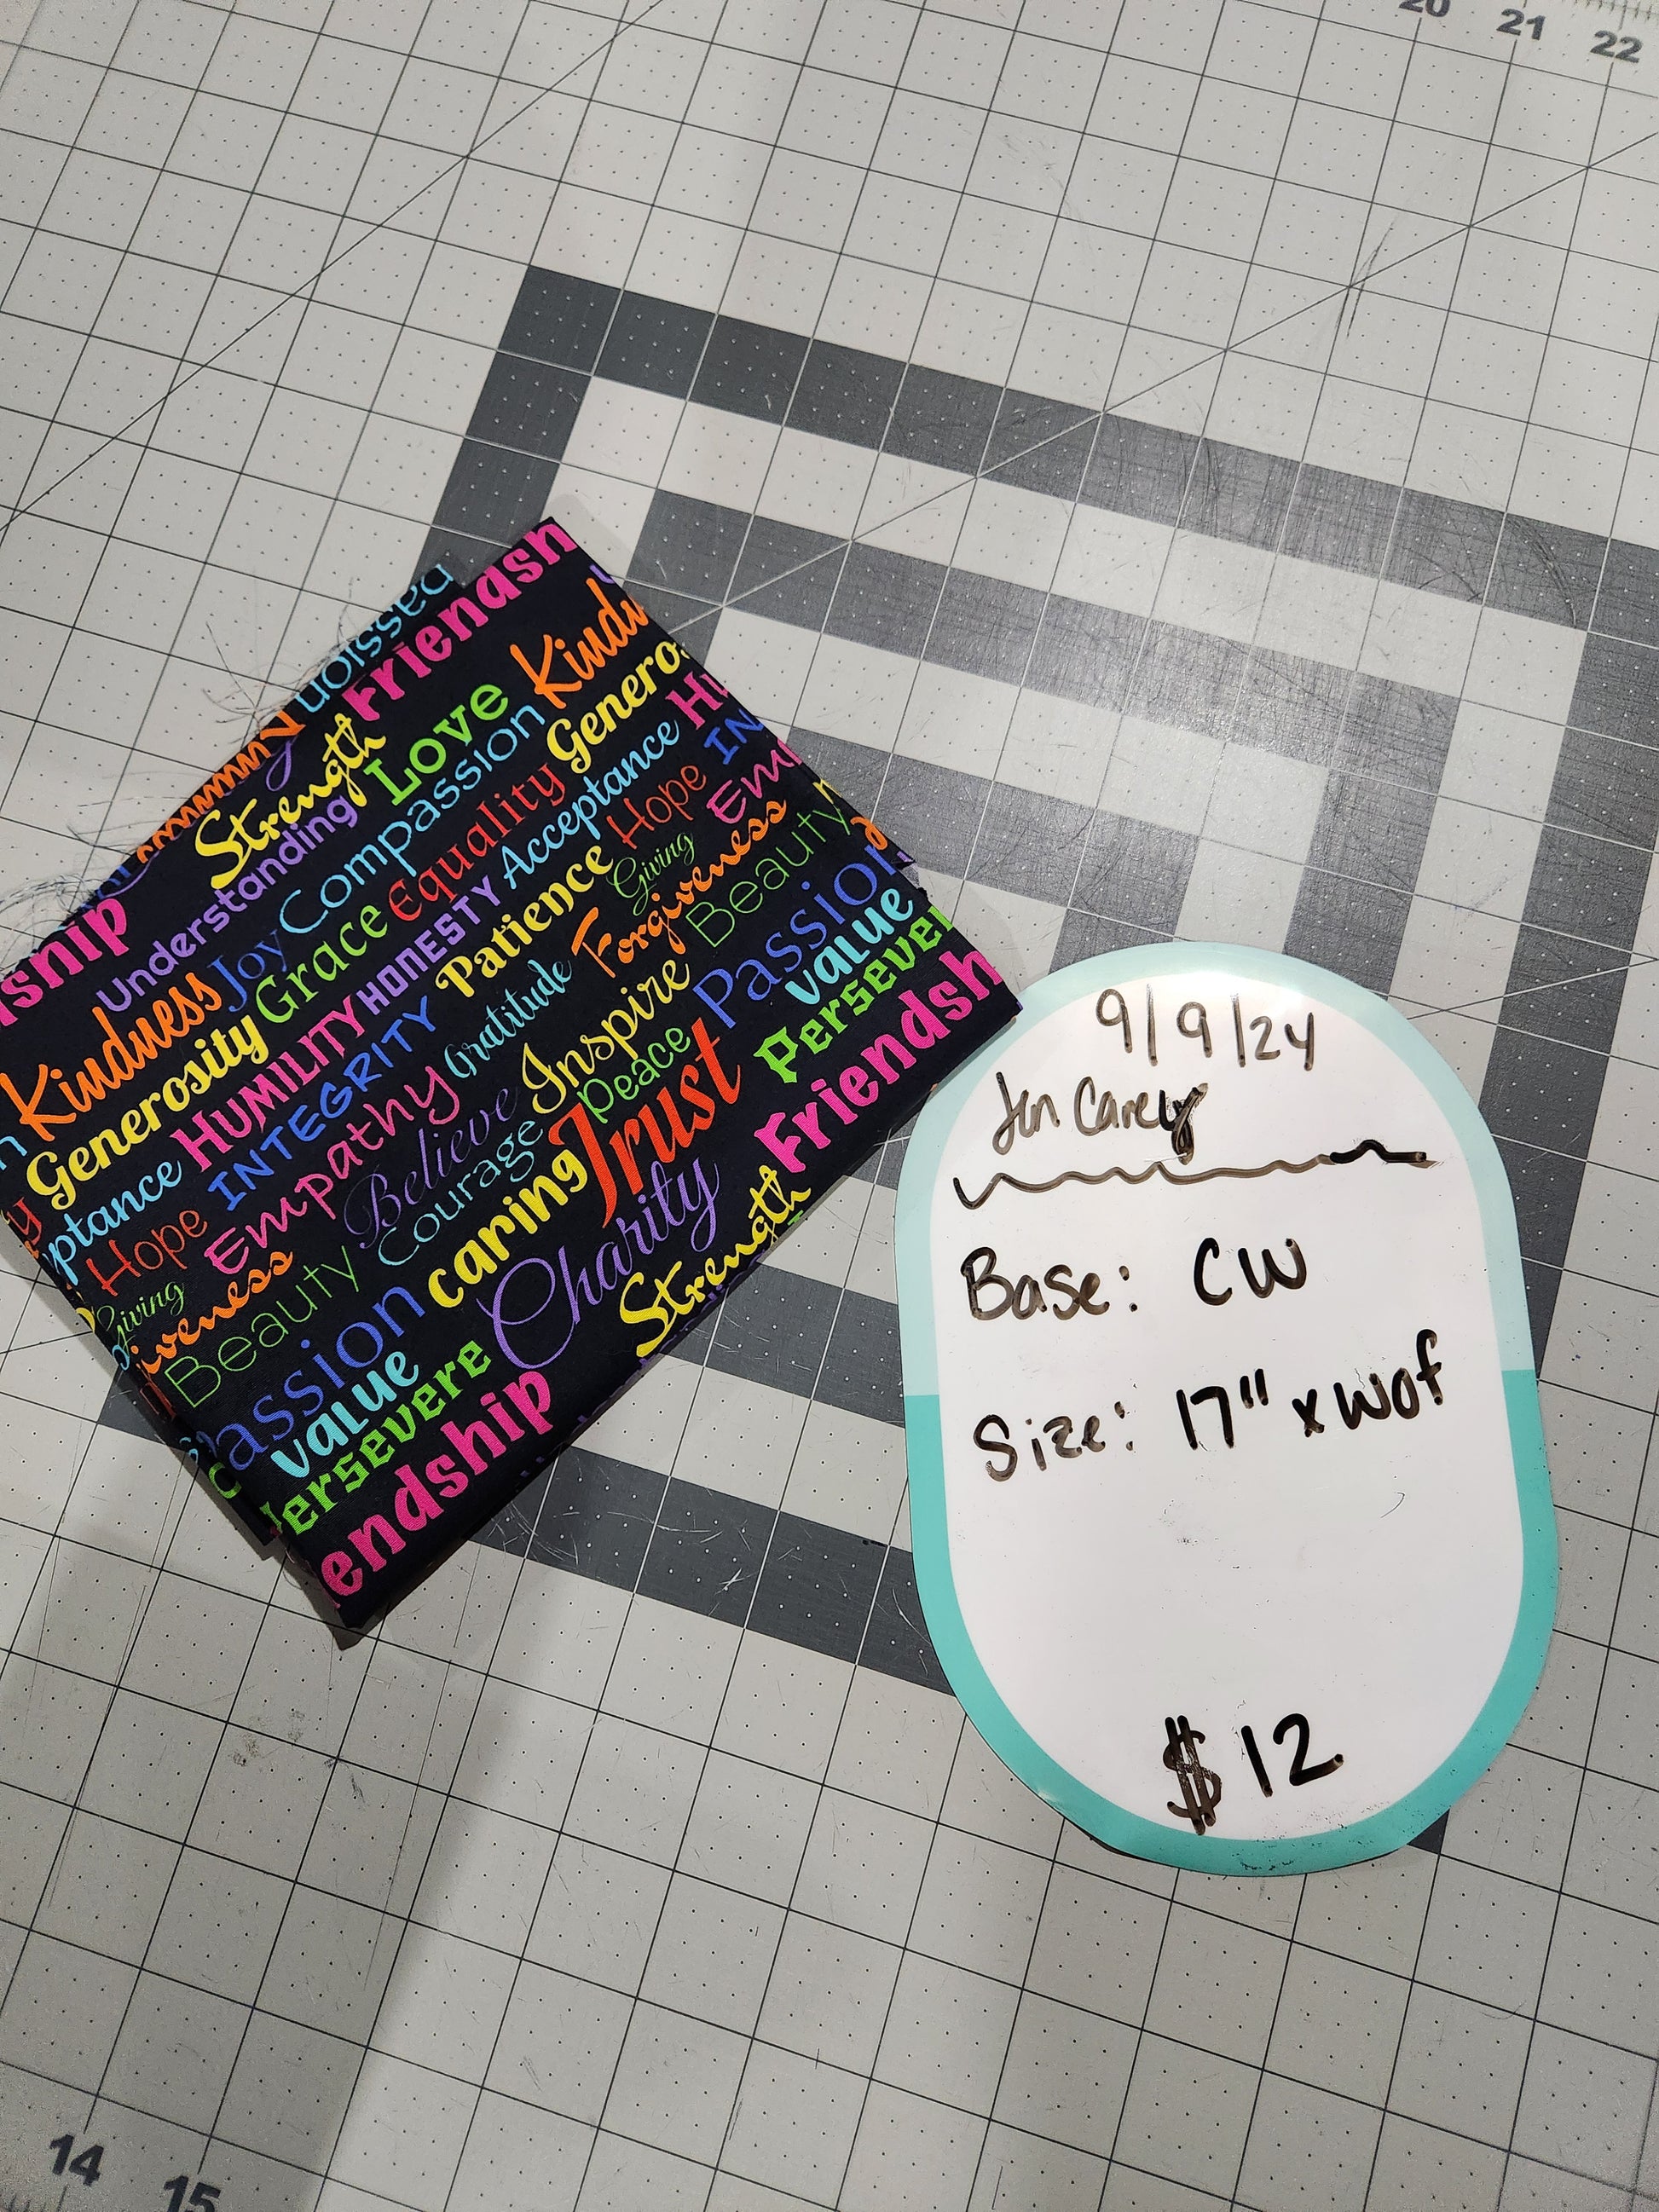 20 21 22
Passion
Friendsh
Strength
Love
Kindn
Understanding
Compassion
Generos
ship
Joy
Equality
Acceptance
Hu
Kindness
Grace
HONESTY
Patience
Hope
IN
Generosity
HUMILITY
Gratitude
Giving
Emp
ptance
INTEGRITY
Forgiveness
Hope
Empathy
Believe
Inspire
Beauty
Giving
iveness
Courage
Peace
Passion
Beauty
caring
Trust
value
assion
Charity
Persever
value
Strength
Friendsh
ersevere
endship
9/9/24
Jen Carey
Base: CW
Size: 17" x wof
$12
14 15